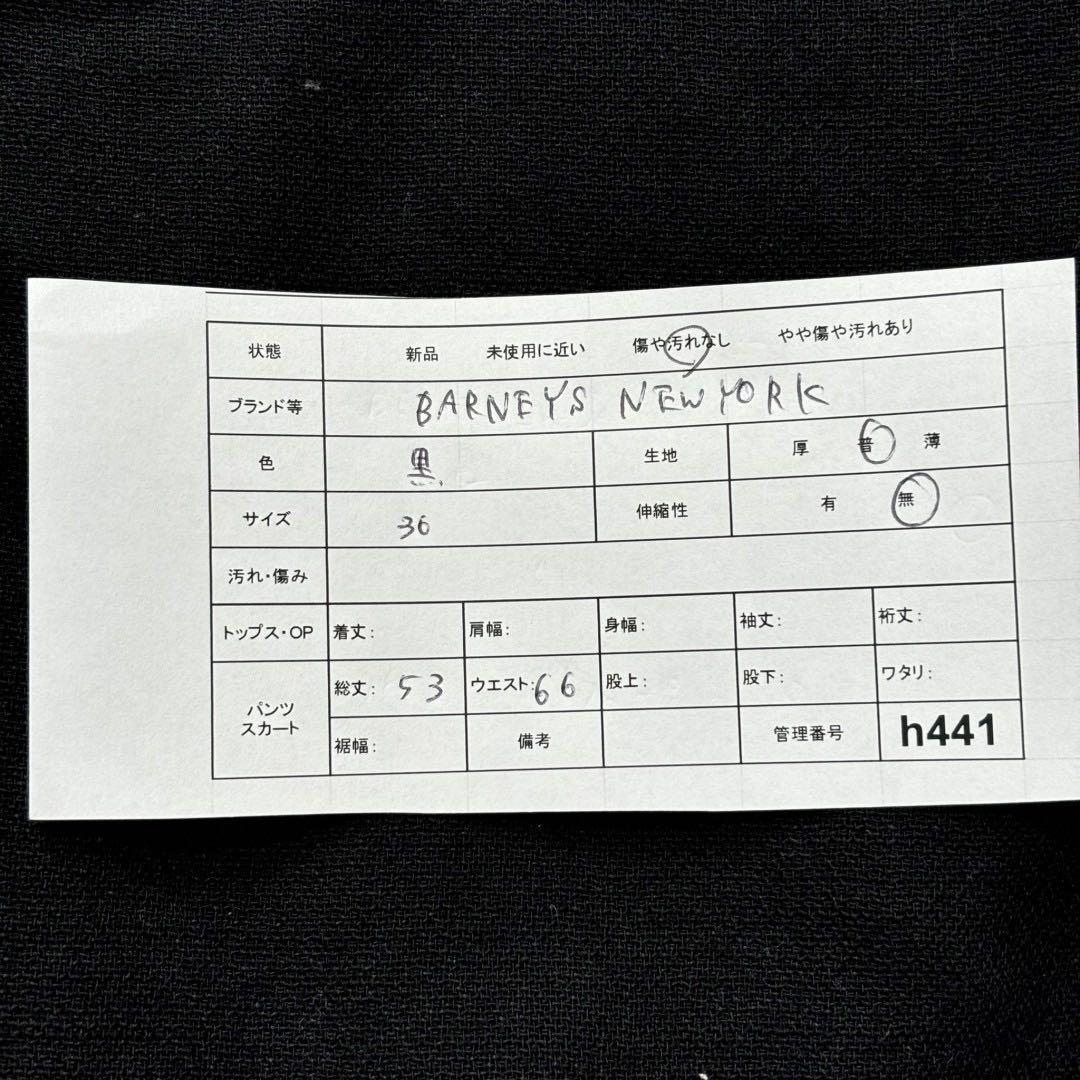 状態 新品 未使用に近い 傷や汚れなし やや傷や汚れあり
ブランド等 BARNEYS NEWYORK
色 黒 生地 厚 普 薄
サイズ 36 伸縮性 有 無
汚れ・傷み
トップス・OP 着丈: 肩幅: 身幅: 袖丈: 裄丈:
パンツ スカート 総丈: 53 ウエスト: 66 股上: 股下: ワタリ:
裾幅: 備考 管理番号 h441